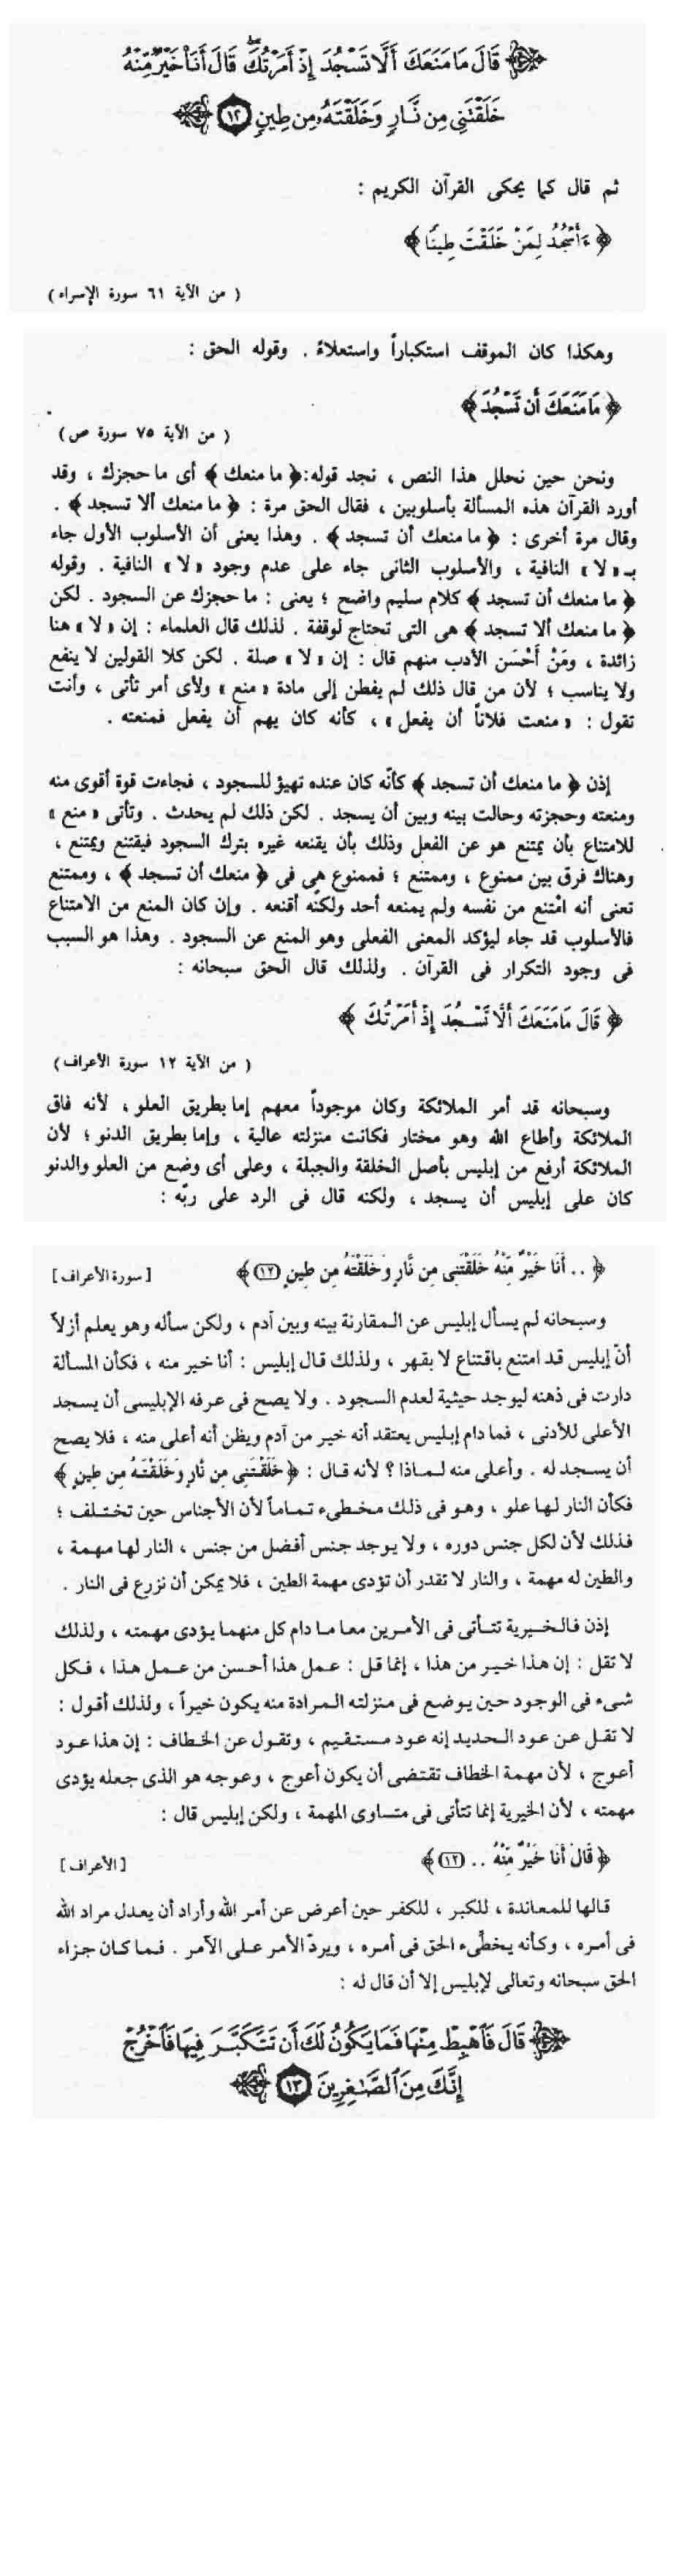 قَالَ مَا مَنَعَكَ أَلَّا تَسْجُدَ إِذْ أَمَرْتُكَ ۖ قَالَ أَنَا۠ خَيْرٌ مِّنْهُ
خَلَقْتَنِى مِن نَّارٍ وَخَلَقْتَهُۥ مِن طِينٍ ١٢
ثم قال كما يحكى القرآن الكريم :
﴿ ءَأَسْجُدُ لِمَنْ خَلَقْتَ طِينًا ﴾
( من الآية ٦١ سورة الإسراء )
وهكذا كان الموقف استكباراً واستعلاءً . وقوله الحق :
﴿ مَا مَنَعَكَ أَن تَسْجُدَ ﴾
( من الآية ٧٥ سورة ص )
ونحن حين نحلل هذا النص ، نجد قوله: ﴿ ما منعك ﴾ أى ما حجزك ، وقد
أورد القرآن هذه المسألة بأسلوبين ، فقال الحق مرة : ﴿ ما منعك ألا تسجد ﴾ .
وقال مرة أخرى : ﴿ ما منعك أن تسجد ﴾ . وهذا يعنى أن الأسلوب الأول جاء
بـ « لا » النافية ، والأسلوب الثانى جاء على عدم وجود « لا » النافية . وقوله
﴿ ما منعك أن تسجد ﴾ كلام سليم واضح ؛ يعنى : ما حجزك عن السجود . لكن
﴿ ما منعك ألا تسجد ﴾ هى التى تحتاج لوقفة . لذلك قال العلماء : إن « لا » هنا
زائدة ، ومَنْ أَحْسَن الأدب منهم قال : إن « لا » صلة . لكن كلا القولين لا ينفع
ولا يناسب ؛ لأن من قال ذلك لم يفطن إلى مادة « منع » ولأى أمر تأتى ، وأنت
تقول : « منعت فلاناً أن يفعل » ، كأنه كان يهم أن يفعل فمنعته .
إذن ﴿ ما منعك أن تسجد ﴾ كأنّه كان عنده تهيؤ للسجود ، فجاءت قوة أقوى منه
ومنعته وحجزته وحالت بينه وبين أن يسجد . لكن ذلك لم يحدث . وتأتى « منع »
للامتناع بأن يمتنع هو عن الفعل وذلك بأن يقنعه غيره بترك السجود فيقتنع ويمتنع ،
وهناك فرق بين ممنوع ، وممتنع ؛ فممنوع هى فى ﴿ منعك أن تسجد ﴾ ، وممتنع
تعنى أنه امْتنع من نفسه ولم يمنعه أحد ولكنّه أقنعه . وإن كان المنع من الامتناع
فالأسلوب قد جاء ليؤكد المعنى الفعلى وهو المنع عن السجود . وهذا هو السبب
فى وجود التكرار فى القرآن . ولذلك قال الحق سبحانه :
﴿ قَالَ مَا مَنَعَكَ أَلَّا تَسْجُدَ إِذْ أَمَرْتُكَ ﴾
( من الآية ١٢ سورة الأعراف )
وسبحانه قد أمر الملائكة وكان موجوداً معهم إما بطريق العلو ، لأنه فاق
الملائكة وأطاع الله وهو مختار فكانت منزلته عالية ، وإما بطريق الدنو ؛ لأن
الملائكة أرفع من إبليس بأصل الخلقة والجبلة ، وعلى أى وضع من العلو والدنو
كان على إبليس أن يسجد ، ولكنه قال فى الرد على ربّه :
﴿ .. أَنَا خَيْرٌ مِّنْهُ خَلَقْتَنِى مِن نَّارٍ وَخَلَقْتَهُ مِن طِينٍ (١٢) ﴾ [سورة الأعراف]
وسبحانه لم يسأل إبليس عن المقارنة بينه وبين آدم ، ولكن سأله وهو يعلم أزلاً
أنّ إبليس قد امتنع باقتناع لا بقهر ، ولذلك قال إبليس : أنا خير منه ، فكأن المسألة
دارت فى ذهنه ليوجد حيثية لعدم السجود . ولا يصح فى عرفه الإبليسى أن يسجد
الأعلى للأدنى ، فما دام إبليس يعتقد أنه خير من آدم ويظن أنه أعلى منه ، فلا يصح
أن يسجد له . وأعلى منه لماذا ؟ لأنه قال : ﴿ خَلَقْتَنِى مِن نَّارٍ وَخَلَقْتَهُ مِن طِينٍ ﴾
فكأن النار لها علو ، وهو فى ذلك مخطىء تماماً لأن الأجناس حين تختلف ؛
فذلك لأن لكل جنس دوره ، ولا يوجد جنس أفضل من جنس ، النار لها مهمة ،
والطين له مهمة ، والنار لا تقدر أن تؤدى مهمة الطين ، فلا يمكن أن نزرع فى النار .
إذن فالخيرية تتأتى فى الأمرين معا ما دام كل منهما يؤدى مهمته ، ولذلك
لا تقل : إن هذا خير من هذا ، إنما قل : عمل هذا أحسن من عمل هذا ، فكل
شىء فى الوجود حين يوضع فى منزلته المرادة منه يكون خيراً ، ولذلك أقول :
لا تقل عن عود الحديد إنه عود مستقيم ، وتقول عن الخطاف : إن هذا عود
أعوج ، لأن مهمة الخطاف تقتضى أن يكون أعوج ، وعوجه هو الذى جعله يؤدى
مهمته ، لأن الخيرية إنما تتأتى فى متساوى المهمة ، ولكن إبليس قال :
﴿ قَالَ أَنَا خَيْرٌ مِّنْهُ .. (١٢) ﴾ [الأعراف]
قالها للمعاندة ، للكبر ، للكفر حين أعرض عن أمر الله وأراد أن يعدل مراد الله
فى أمره ، وكأنه يخطِّىء الحق فى أمره ، ويردّ الأمر على الآمر . فما كان جزاء
الحق سبحانه وتعالى لإبليس إلا أن قال له :
قَالَ فَٱهْبِطْ مِنْهَا فَمَا يَكُونُ لَكَ أَن تَتَكَبَّرَ فِيهَا فَٱخْرُجْ
إِنَّكَ مِنَ ٱلصَّـٰغِرِينَ ١٣